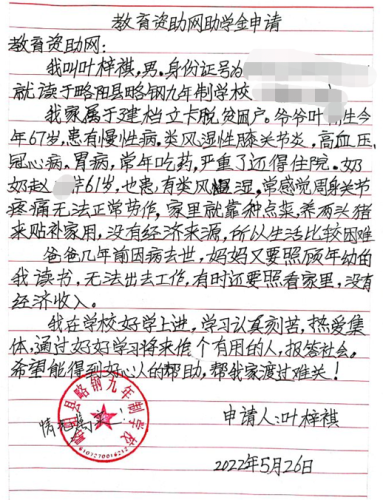 教育资助网助学金申请
教育资助网：
我叫叶梓祺，男。身份证号为
就读于略阳县略钢九年制学校
我家属于建档立卡脱贫困户。爷爷叶生今
年67岁，患有慢性病。类风湿性膝关节炎，高血压，
冠心病、胃病，常年吃药，严重了还得住院。奶
奶赵61岁，也患有类风湿，常感觉周身关节
疼痛无法正常劳作，家里就靠种点菜，养两头猪
来贴补家用，没有经济来源，所以生活比较困难
爸爸几年前因病去世，妈妈又要照顾年幼的
我读书，无法出去工作，有时还要照看家里，没有
经济收入。
我在学校好学上进，学习认真刻苦，热爱集
体，通过好好学习将来作个有用的人，报答社会。
希望能得到好心人的帮助，帮我家渡过难关！
情况
县略钢九年制学校
6101270016212
申请人：叶梓祺
2022年5月26日